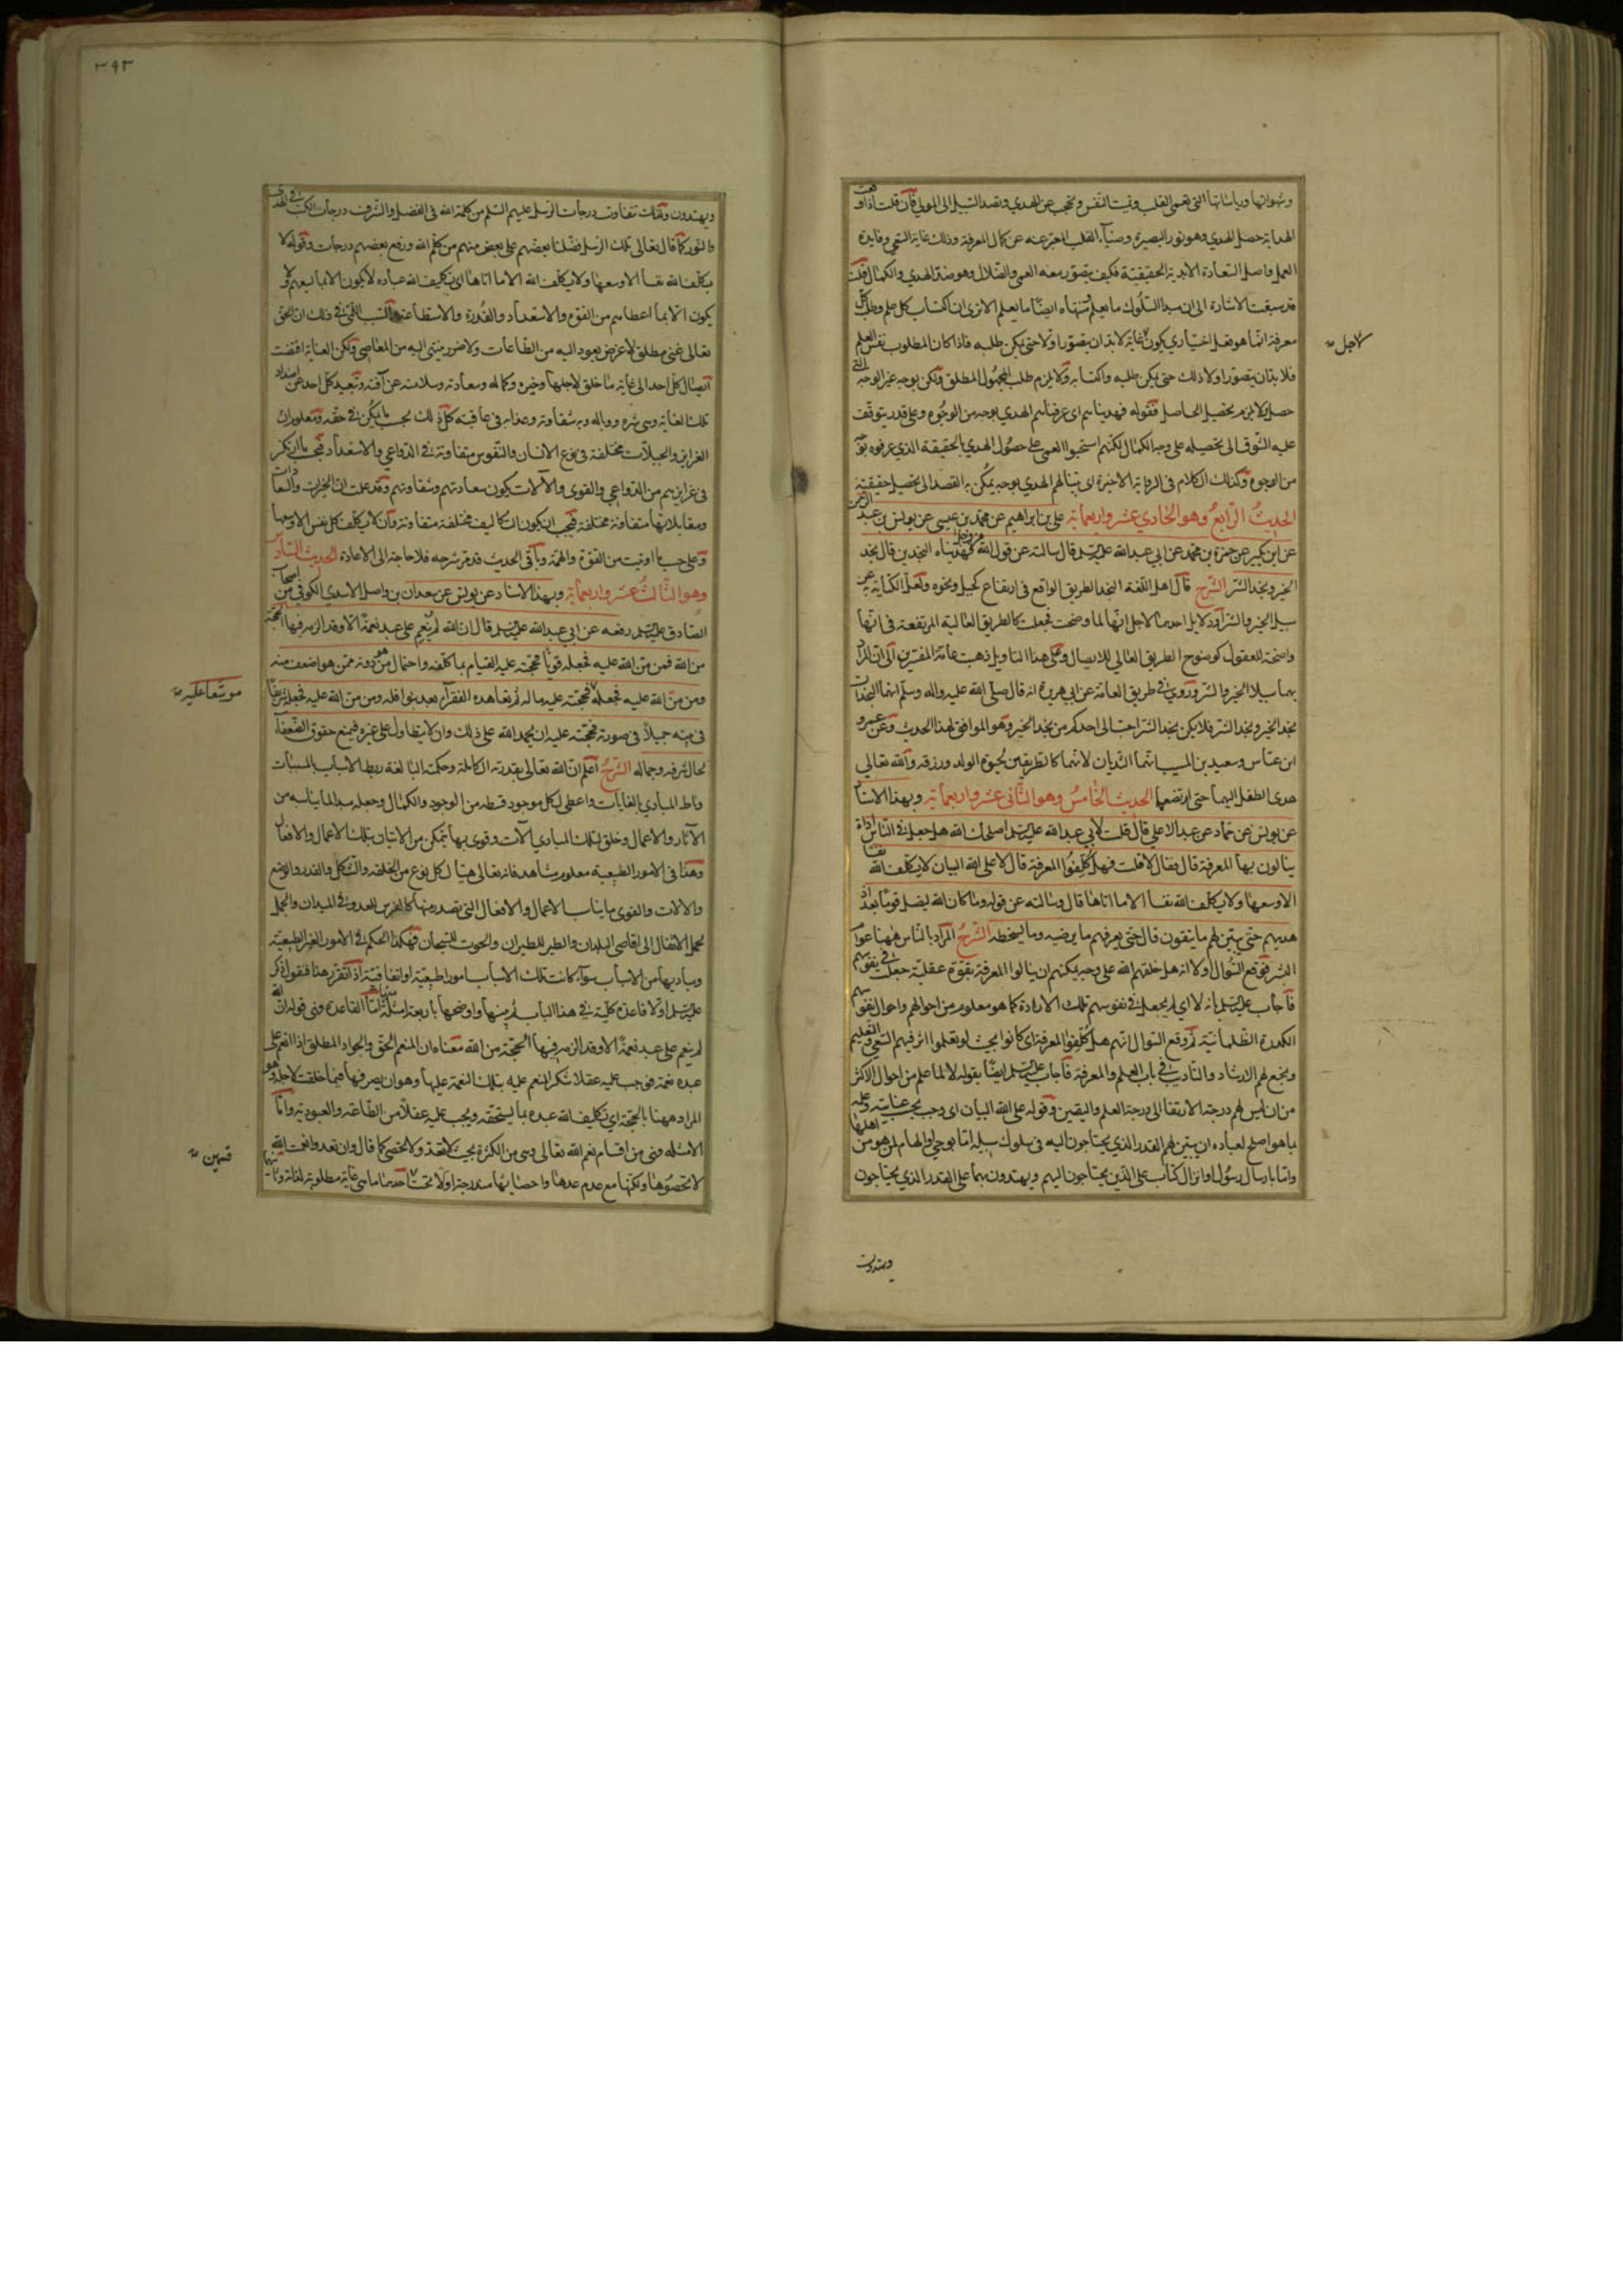 وشهواتها ورياساتها التي تعمى القلب وتميت النفس وتحجب عن الهدي وتصد السبيل الى المولي فان قلت اذا وقعت
الهداية حصل الهدي وهو نور البصيرة وضياء القلب المعبر عنه عن كمال المعرفة وذلك غاية السعي وفايدة
العمل واصل السعادة الابدية الحقيقية فكيف يتصور معه العمى والضلال وهو ضد الهدي والكمال قلت
قد سبقت الاشارة الى ان مبدا السلوك ما يعلم ومنتهاه ايضا ما يعلم الا ترى ان اكتساب كل علم وطلب كل
معرفة انما هو فعل اختياري يكون لاجل غاية لابد ان يتصور اولا حتى يمكن طلبه فاذا كان المطلوب نفس العلم
فلا بد ان يتصور اولا ذلك حتى يمكن طلبه واكتسابه ولا يلزم طلب المجهول المطلق ولكن بوجه غير الوجه الذي
حصل لئلا يلزم تحصيل الحاصل فقوله فهديناهم اى عرفناهم الهدي بوجه من الوجوه وعلى قدر يتوقف
عليه الشوق الى تحصيله على وجه الكمال لكنهم استحبوا العمى على حصول الهدي بالحقيقة الذي عرفوه بوجه
من الوجوه وكذلك الكلام في الرواية الاخيرة اى بينا لهم الهدي بوجه يمكن به القصد الى تحصيل حقيقته
الحديث الرابع وهو الحادي عشر واربعماية على بن ابراهيم عن محمد بن عيسى عن يونس بن عبد الرحمن
عن ابن بكير عن حمزة بن محمد عن ابي عبدالله عليه السلم قال سالته عن قول الله عز وجل وهديناه النجدين قال نجد
الخير ونجد الشر الشرح قال اهل اللغة النجد الطريق الواقع في ارتفاع كجبل ونحوه ولعل الكناية به عن
سبيل الخير والشر اذ دلايل احدهما لاجل انها لما وضحت فجعلت كالطريق العالية المرتفعة في انها
واضحة للعقول كوضوح الطريق العالي للابصال وعلى هذا التاويل ذهبت عامة المفسرين الى ان المراد
بهما سبيلا الخير والشر وروي في طريق العامة عن ابي هريرة انه قال صلى الله عليه واله وسلم انهما النجدان
نجد الخير ونجد الشر فلا يكن نجد الشر احب الى احدكم من نجد الخير وهو الموافق لهذا الحديث وعن عمرو
ابن عباس وسعيد بن المسيب انهما الثديان لانهما كالطريقين لحيوة الولد ورزقه والله تعالى
هدى الطفل اليهما حتى ارتضعهما الحديث الخامس وهو الثاني عشر واربعماية وبهذا الاسناد
عن يونس عن حماد عن عبد الاعلى قال قلت لابي عبدالله عليه السلم اصلحك الله هل جعل في الناس اداة
ينالون بها المعرفة قال فقال لا قلت فهل كلفوا المعرفة قال لا على الله البيان لا يكلف الله نفسا
الا وسعها ولا يكلف الله نفسا الا ما اتاها قال وسالته عن قوله وما كان الله ليضل قوما بعد اذ
هديهم حتى يبين لهم ما يتقون قال حتى يعرفهم ما يرضيه وما يسخطه الشرح المراد بالناس ههنا عوام
البشر فوقع السؤال اولا انه هل خلقهم الله على وجه يمكنهم ان ينالوا المعرفة بقوة عقلية جعلت في نفوسهم
فاجاب عليه السلم بانه لا اى لم يجعل في نفوسهم تلك الاراده كما هو معلوم من احوالهم واحوال نفوسهم
الكدرة الظلمانية ثم وقع السؤال انهم هل كلفوا المعرفة اى كانوا بحيث لو تعلموا اثر فيهم السعي والتعليم
ونجع لهم الارشاد والتاديب في باب العلم والمعرفة فاجاب عليه السلم ايضا بقوله لا لما علم من احوال الاكثر
من ان ليس لهم درجة الارتقا الى درجة العلم واليقين وقوله على الله البيان اى وجب بحسب عنايته وعلمه
بما هو اصلح لعباده ان يبين لهم القدر الذي يحتاجون اليه في سلوك سبيله اما بوحي او الهام لمن هو من اهلها
واما بارسال رسول او انزال كتاب على الذين يحتاجون اليهم ويهتدون بهما على القدر الذي يحتاجون
لاجل
ويهتدون
٣٩٣
ويهتدون ولذلك تتفاوت درجات الرسل عليهم السلم من كلمة الله في الفضل والشرف درجات الكتب في الهدى
والنور كما قال تعالى تلك الرسل فضلنا بعضهم على بعض منهم من كلم الله ورفع بعضهم درجات وقوله لا
يكلف الله نفسا الا وسعها ولا يكلف الله الا ما اتاها اى تكليف الله عباده لا يكون الا بما يسعهم ولا
يكون الا بما اعطاهم من القوة والاستعداد والقدرة والاستطاعة والسبب اللمي في ذلك ان الحق
تعالى غني مطلق لا غرض يعود اليه من الطاعات ولا ضرر ينتهي اليه من المعاصي ولكن العناية اقتضت
ايصال كل احد الى غاية ما خلق لاجلها وخيره وكماله وسعادته وسلامته عن آفته وتبعيد كل احد عن اضداد
تلك الغاية وهى شره ووباله وبه شقاوته وعذابه في عاقبته كل ذلك بحسب ما يمكن في حقه ومعلوم ان
الغرايز والجبلات مختلفة في نوع الانسان والنفوس متفاوتة في الدواعي والاستعداد فبحسب ما ارتكز
في غرايزهم من الدواعي والقوى والآلات يكون سعادتهم وشقاوتهم وقد علمت ان الخيرات والسعادات
ومقابلاتها متفاوتة مختلفة فيجب ان يكون التكاليف مختلفة متفاوتة وان لا يكلف كل نفس الا وسعها
وعلى حسب ما اوتيت من القوة والهمة وباقى الحديث قد مر شرحه فلا حاجة الى الاعادة الحديث السادس
وهو الثالث عشر واربعماية وبهذا الاسناد عن يونس عن سعدان بن واصل الاسدي الكوفي من اصحاب
الصادق عليه السلم رفعه عن ابي عبدالله عليه السلم قال ان الله لم ينعم على عبد نعمة الا وقد الزمه فيها الحجة
من الله فمن من الله عليه فجعله قويا فحجته عليه القيام بما كلفه واحتمال من هو دونه ممن هو اضعف منه
ومن من الله عليه فجعله موسعا عليه فحجته عليه ماله ثم تعاهده الفقراء بعد بنوافله ومن من الله عليه فجعله شريفا
في بيته جميلا في صورته فحجته عليه ان يحمد الله على ذلك وان لا يتطاول على غيره فيمنع حقوق الضعفاء
لحال شرفه وجماله الشرح اعلم ان الله تعالى بقدرته الكاملة وحكمته البالغة ربط الاسباب بالمسببات
وناط المبادي بالغايات واعطى لكل موجود قسطه من الوجود والكمال وجعله مبدا لما يناسبه من
الآثار والاعمال وخلق لتلك المبادي آلات وقوى بها يتمكن من الاتيان بتلك الاعمال والافعال
وهذا في الامور الطبيعية معلوم مشاهد فانه تعالى هيأ لكل نوع من الخلقة والشكل والقدر والوضع
والالات والقوى ما يناسب الاعمال والافعال التي تصدر منها كالفرس للعدو في الميدان والجمل
لحمل الاثقال الى اقاصي البلدان والطير للطيران والحوت للسبحان فهكذا الحكم في الامور الغير الطبيعية
ومباديها من الاسباب سواء كانت تلك الاسباب امورا طبيعية او اتفاقية اذا تقرر هذا فنقول ذكر
عليه السلم اولا قاعدة كلية في هذا الباب ثم بينها واوضحها بامثلة اما القاعدة فهى قوله ان الله
لم ينعم على عبد نعمة الا وقد الزمه فيها الحجة من الله معناه ان المنعم الحق والجواد المطلق اذا انعم على
عبده نعمة فوجب عليه عقلا شكر المنعم عليه بتلك النعمة عليها وهو ان يصرفها فيما خلقت لاجله وهو
المراد ههنا بالحجة اى تكليف الله عبده بما يستحقه ويجب عليه عقلا من الطاعة والعبودية واما
الامثله فهى من اقسام نعم الله تعالى وهى من الكثرة بحيث لا تعد ولا تحصى كما قال وان تعدوا نعمت الله
لا تحصوها ولكنها مع عدم عدها واحصايها مندرجة اولا تحت قسمين احدهما ما هى غاية مطلوبة لذاته وثانيهما
موسعا عليه
قسمين